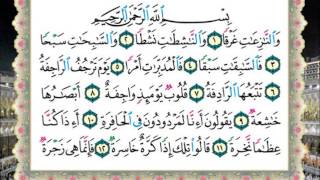 بِسْمِ ٱللَّهِ ٱلرَّحْمَٰنِ ٱلرَّحِيمِ
وَٱلنَّٰزِعَٰتِ غَرْقًا ١ وَٱلنَّٰشِطَٰتِ نَشْطًا ٢ وَٱلسَّٰبِحَٰتِ سَبْحًا
٣ فَٱلسَّٰبِقَٰتِ سَبْقًا ٤ فَٱلْمُدَبِّرَٰتِ أَمْرًا ٥ يَوْمَ تَرْجُفُ ٱلرَّاجِفَةُ
٦ تَتْبَعُهَا ٱلرَّادِفَةُ ٧ قُلُوبٌ يَوْمَئِذٍ وَاجِفَةٌ ٨ أَبْصَٰرُهَا
خَٰشِعَةٌ ٩ يَقُولُونَ أَءِنَّا لَمَرْدُودُونَ فِى ٱلْحَافِرَةِ ١٠ أَءِذَا كُنَّا
عِظَٰمًا نَّخِرَةً ١١ قَالُوا۟ تِلْكَ إِذًا كَرَّةٌ خَاسِرَةٌ ١٢ فَإِنَّمَا هِىَ زَجْرَةٌ